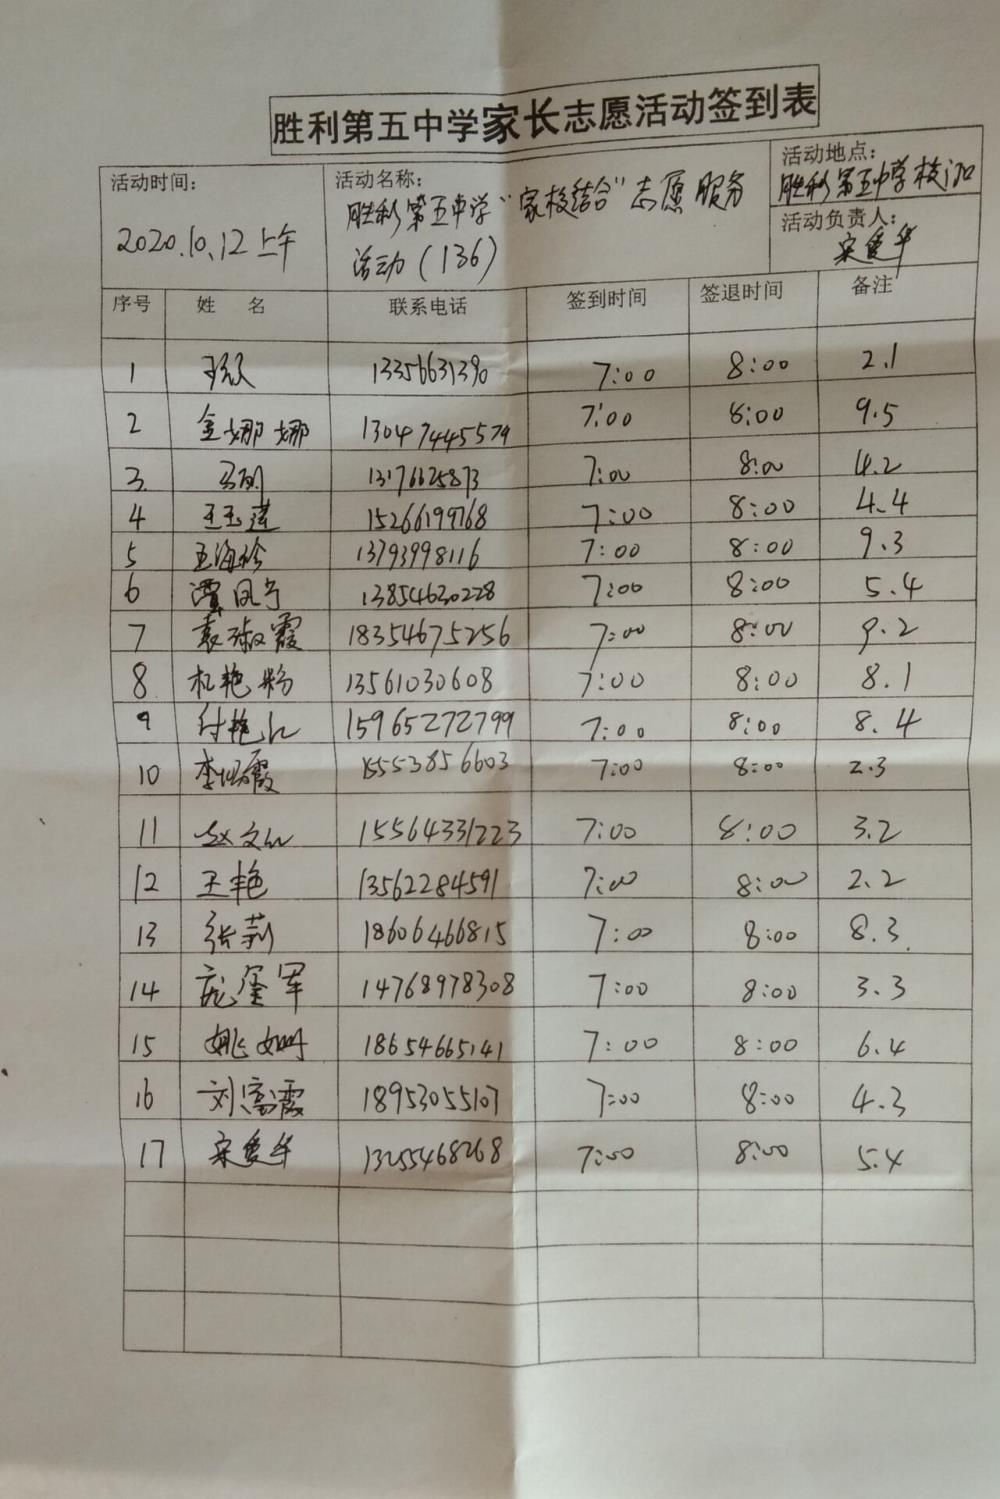 胜利第五中学家长志愿活动签到表
活动时间：
2020.10.12上午
活动名称：
胜利第五中学“家校结合”志愿服务
活动（136）
活动地点：
胜利第五中学校门口
活动负责人：
宋爱华
序号 姓 名 联系电话 签到时间 签退时间 备注
1 13356631390 7:00 8:00 2.1
2 金娜娜 13047445579 7:00 8:00 9.5
3 马丽 13176625873 7:00 8:00 4.2
4 王玉莲 15266199768 7:00 8:00 4.4
5 王海珍 13793998116 7:00 8:00 9.3
6 谭凤宁 13854630228 7:00 8:00 5.4
7 袁淑霞 18354675256 7:00 8:00 9.2
8 杜艳粉 13561030608 7:00 8:00 8.1
9 付艳红 15965272799 7:00 8:00 8.4
10 15553856603 7:00 8:00 2.3
11 赵文红 15564331223 7:00 8:00 3.2
12 王艳 13562284591 7:00 8:00 2.2
13 张莉 18606466815 7:00 8:00 8.3
14 14768978308 7:00 8:00 3.3
15 姚如明 18654665141 7:00 8:00 6.4
16 刘富霞 18953055107 7:00 8:00 4.3
17 宋爱华 13255468268 7:00 8:00 5.4